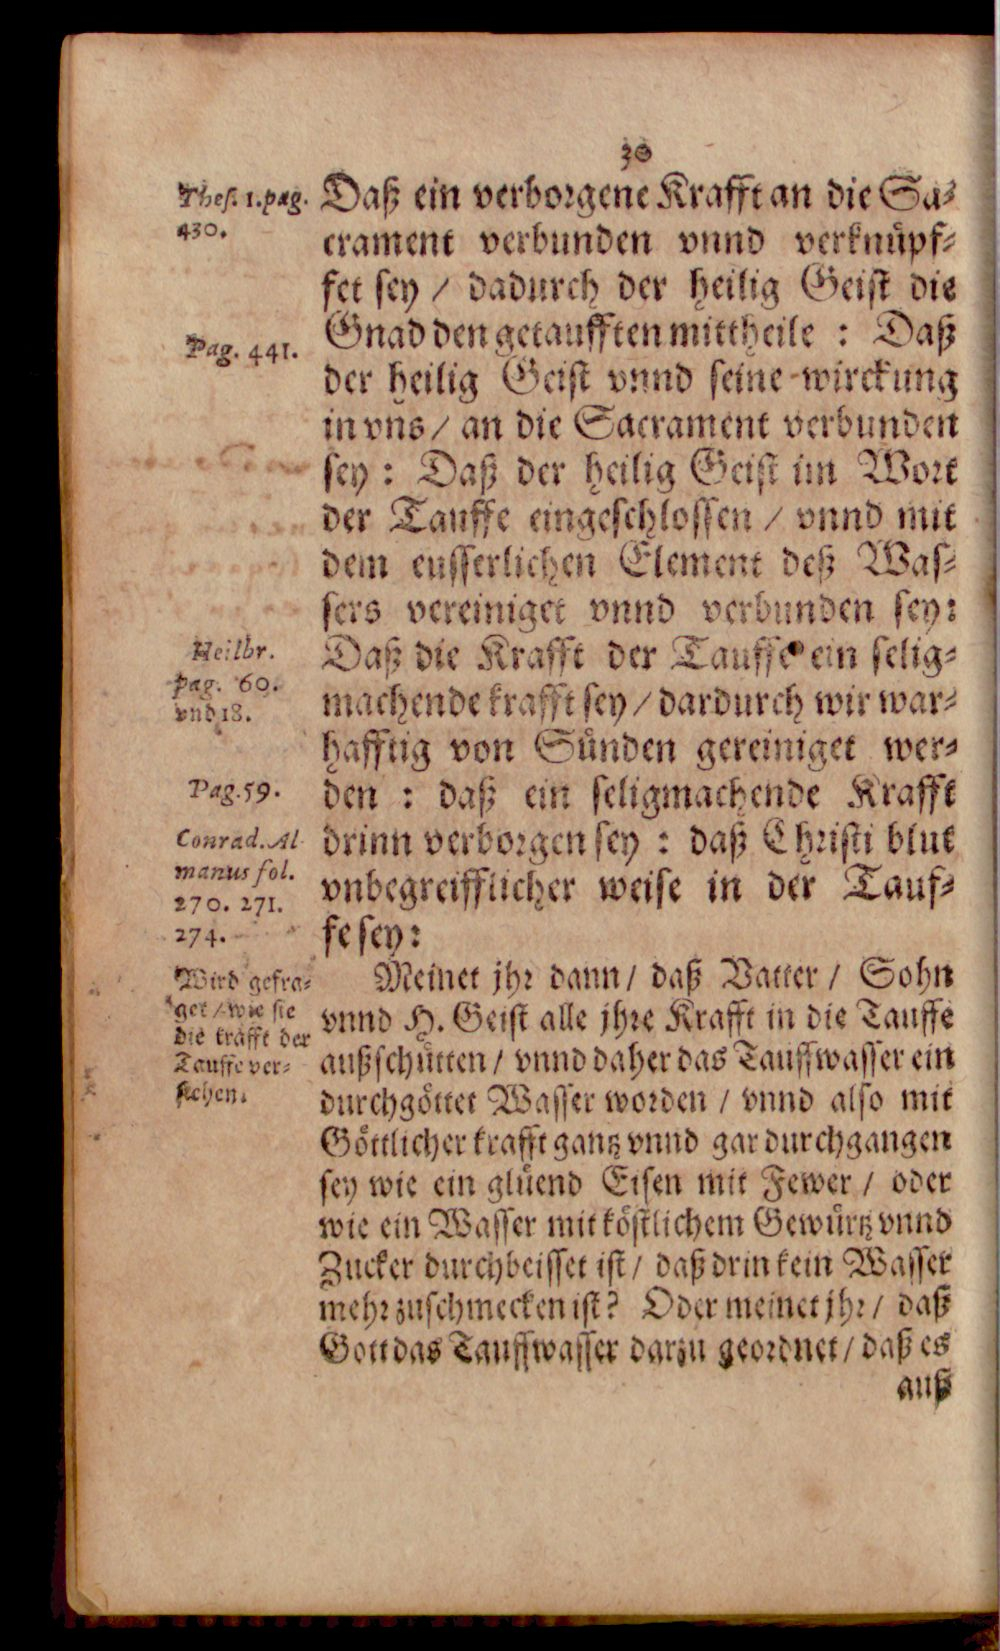 30
Thes. 1. pag.
430.
Pag. 441.
Heilbr.
pag. 60.
vnd 18.
Pag. 59.
Conrad. Al
manus fol.
270. 271.
274.
Wird gefra⸗
get / wie sie
die krafft der
Tauffe ver⸗
stehen.
Daß ein verborgene Krafft an die Sa⸗
crament verbunden vnnd verknuͤpf⸗
fet sey / dadurch der heilig Geist die
Gnad den getaufften mittheile : Daß
der heilig Geist vnnd seine wirckung
in vns / an die Sacrament verbunden
sey : Daß der heilig Geist im Wort
der Tauffe eingeschlossen / vnnd mit
dem eusserlichen Element deß Was⸗
sers vereiniget vnnd verbunden sey:
Daß die Krafft der Tauffe ein selig⸗
machende krafft sey / dardurch wir war⸗
hafftig von Suͤnden gereiniget wer⸗
den : daß ein seligmachende Krafft
drinn verborgen sey : daß Christi blut
vnbegreifflicher weise in der Tauf⸗
fe sey:
Meinet jhr dann / daß Vatter / Sohn
vnnd H. Geist alle jhre Krafft in die Tauffe
außschuͤtten / vnnd daher das Tauffwasser ein
durchgoͤttet Wasser worden / vnnd also mit
Goͤttlicher krafft gantz vnnd gar durchgangen
sey wie ein gluͤend Eisen mit Fewer / oder
wie ein Wasser mit koͤstlichem Gewuͤrtz vnnd
Zucker durchbeisset ist / daß drin kein Wasser
mehr zuschmecken ist? Oder meinet jhr / daß
Gott das Tauffwasser darzu geordnet / daß es
auß